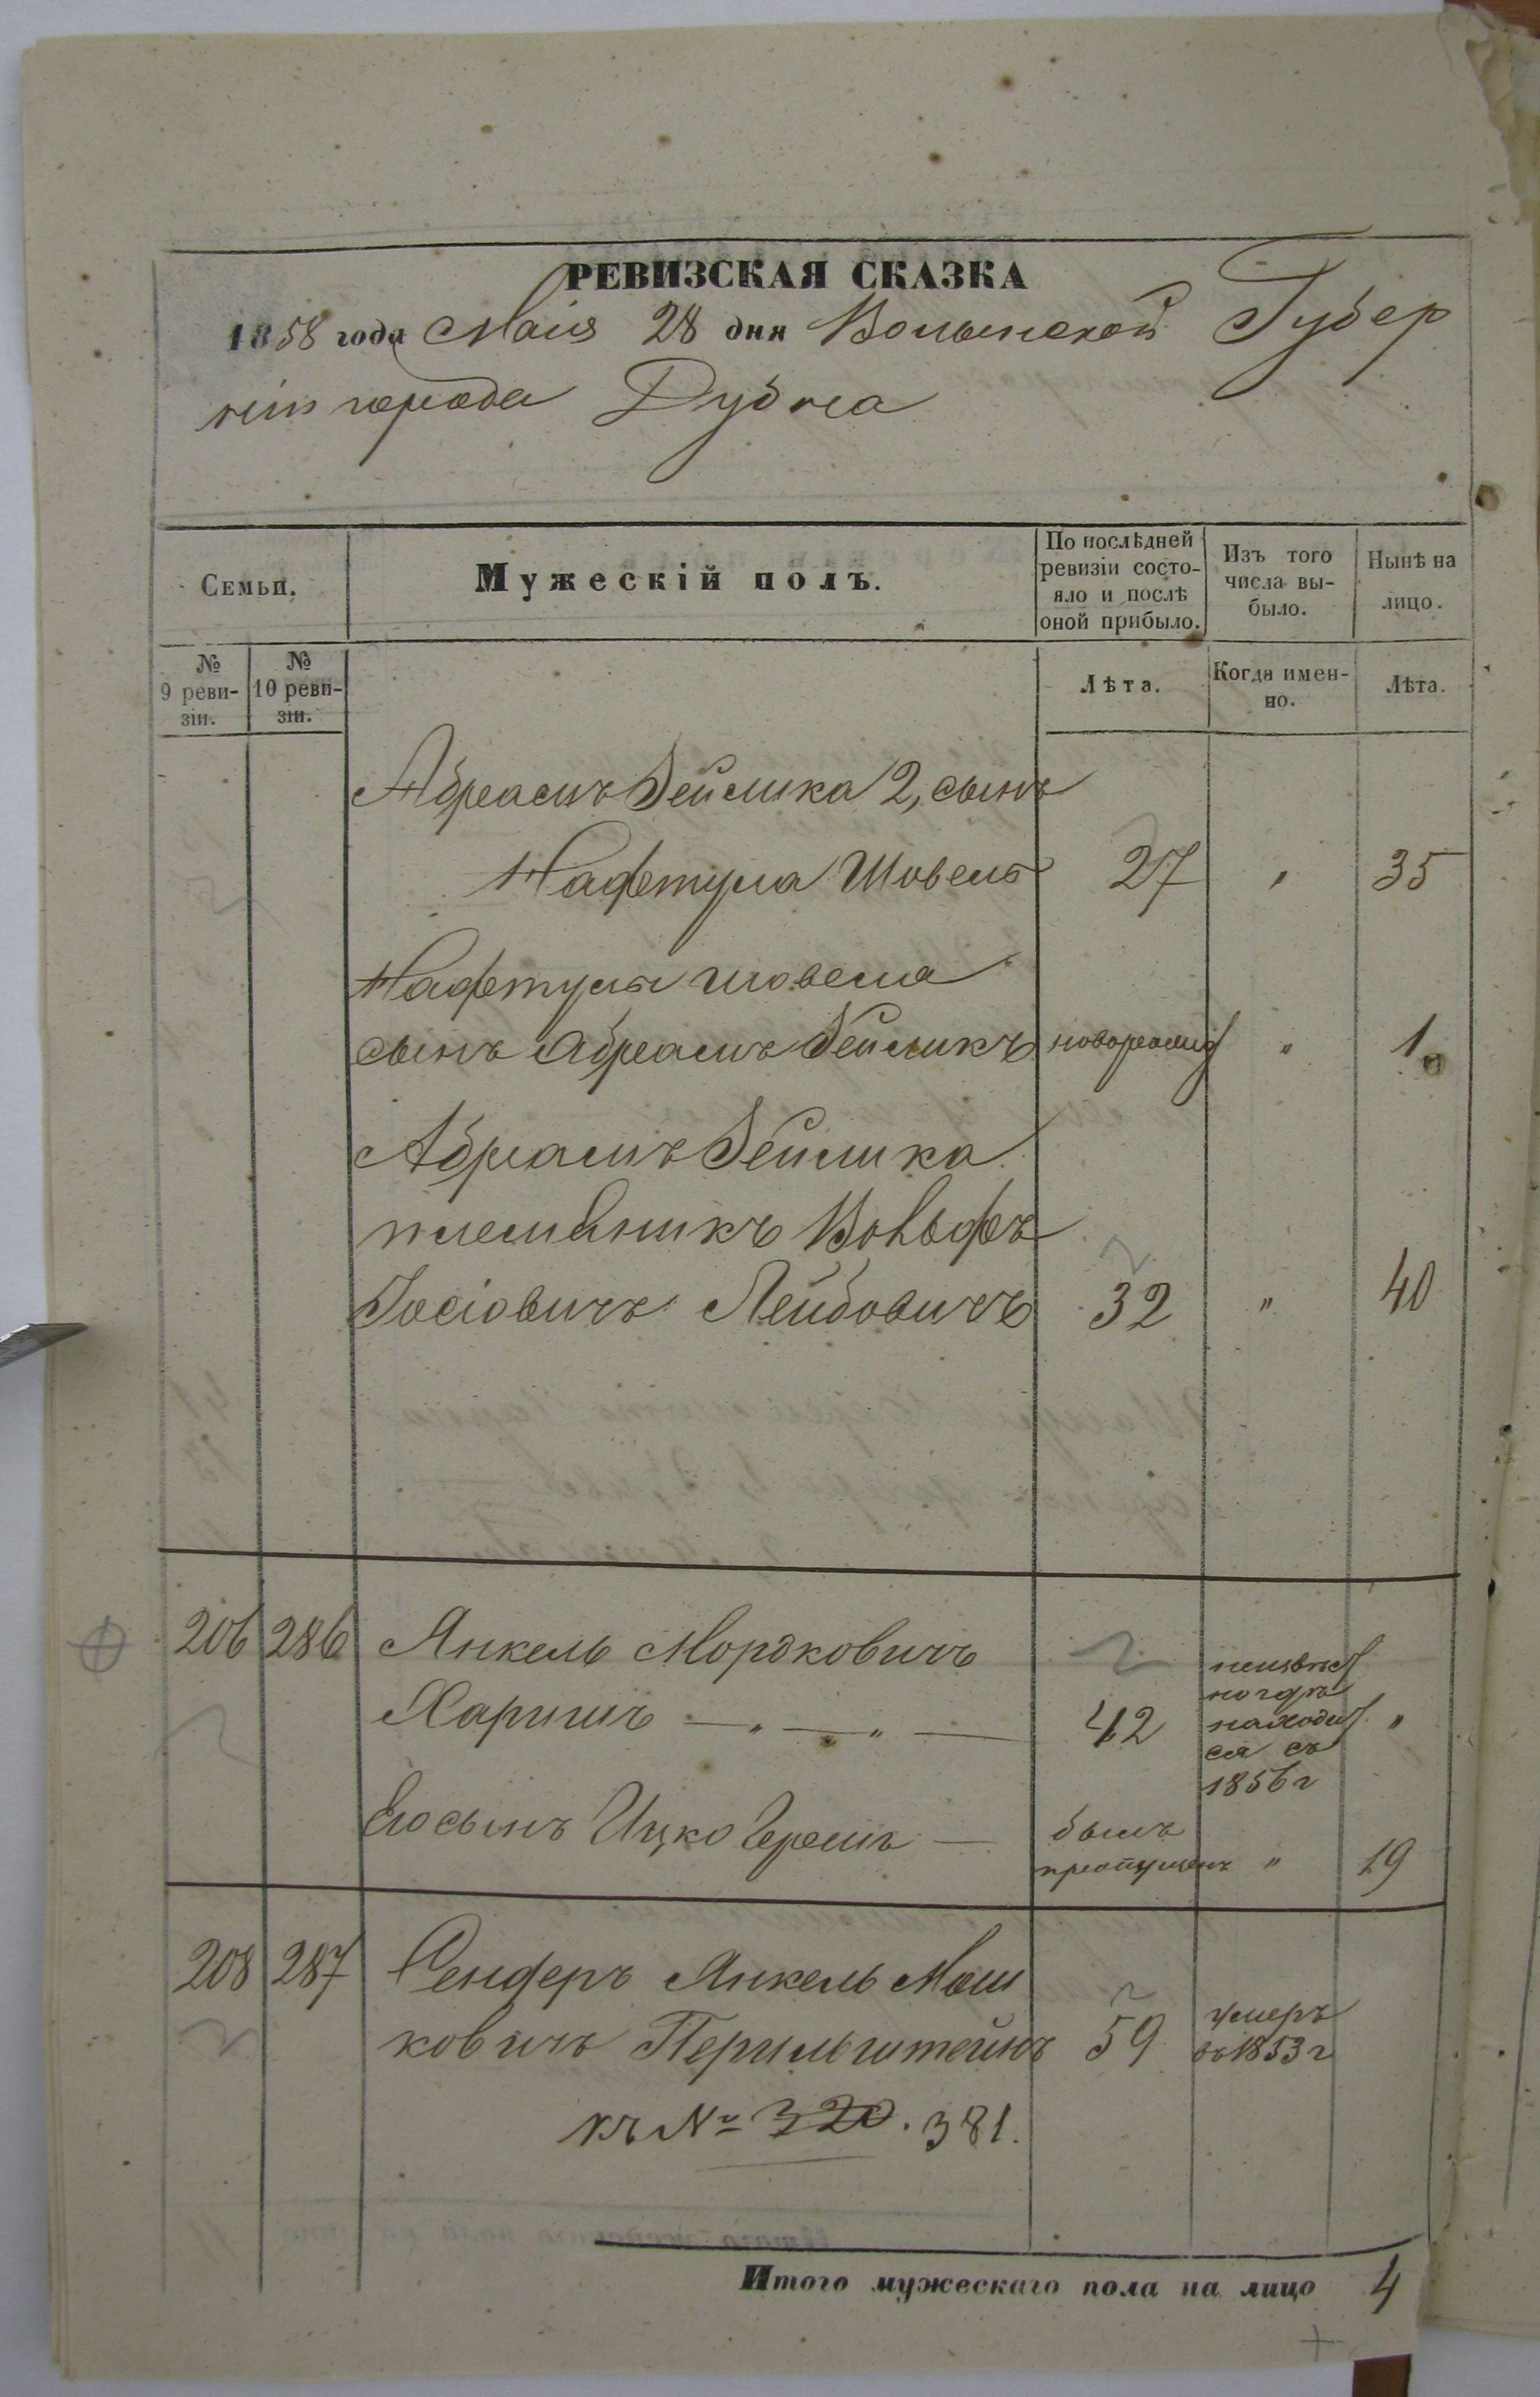 РЕВИЗСКАЯ СКАЗКА
1858 года Маія 28 дня Волынской Губер
ніи города Дубна
Семьи.
Мужескій полъ.
По послѣдней ревизіи состо-
яло и послѣ
оной прибыло.
Изъ того
числа вы-
было.
Нынѣ на
лицо.
№
9 реви-
зіи.
№
10 реви-
зіи.
Лѣта.
Когда имен-
но.
Лѣта.
Абрамъ Зейлика 2, сынъ
Нафтула Шовель 27 " 35
Нафтулы Шовеля
сынъ Абрамъ Зейликъ новорожд " 1
Абрамъ Зейлика
племяникъ Вольфъ
Іосіовичъ Лейбовичъ 32 " 40
206 286 Янкель Мордковичъ
Харишъ — " — " — 42 неизвѣст
но гдѣ
находит
ся съ
1856 г "
Его сынъ Ицко Герешъ — былъ
пропущенъ " 19
208 287 Сендеръ Янкель Мош
ковичъ Перильштейнъ 59 умеръ
въ 1853 г
къ № 320. 381.
Итого мужескаго пола на лицо 4